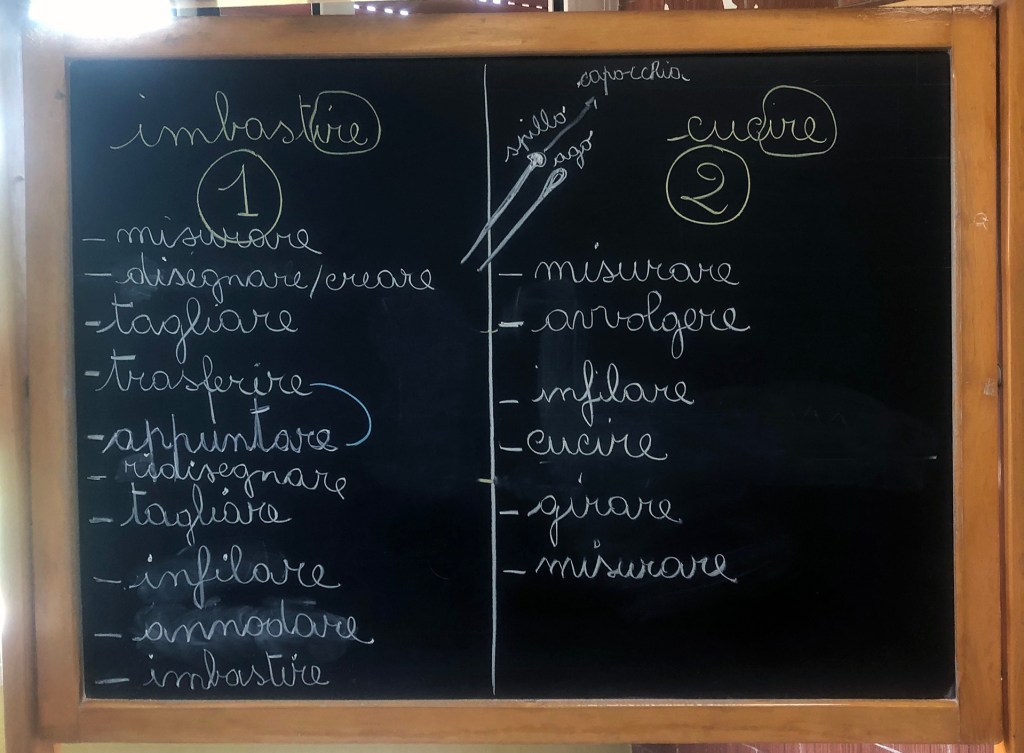 imbastire
1
- misurare
- disegnare/creare
- tagliare
- trasferire
- appuntare
- ridisegnare
- tagliare
- infilare
- annodare
- imbastire
capocchia
spillo
ago
cucire
2
- misurare
- avvolgere
- infilare
- cucire
- girare
- misurare